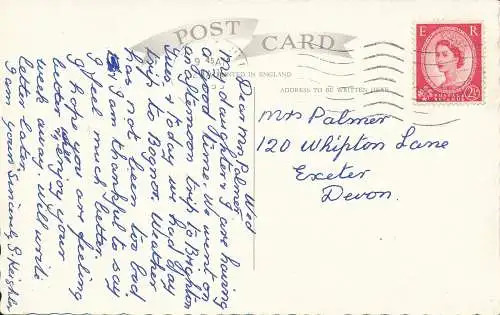 POST CARD
PRINTED IN ENGLAND
ADDRESS TO BE WRITTEN HERE
9 45 AM
E R
POSTAGE REVENUE
2½D
Wed
Dear Mrs Palmer,
My daughter & I are having
a Good Time. We went on
an afternoon trip to Brixham
Tues & today we had Day
trip to Bognor. Weather
has not been too bad
I am thankful to say
I feel much better.
I hope you are feeling
better & enjoy your
week away. Will write
letter later.
I am yours Sincerely
Mrs Palmer
120 Whipton Lane
Exeter
Devon.